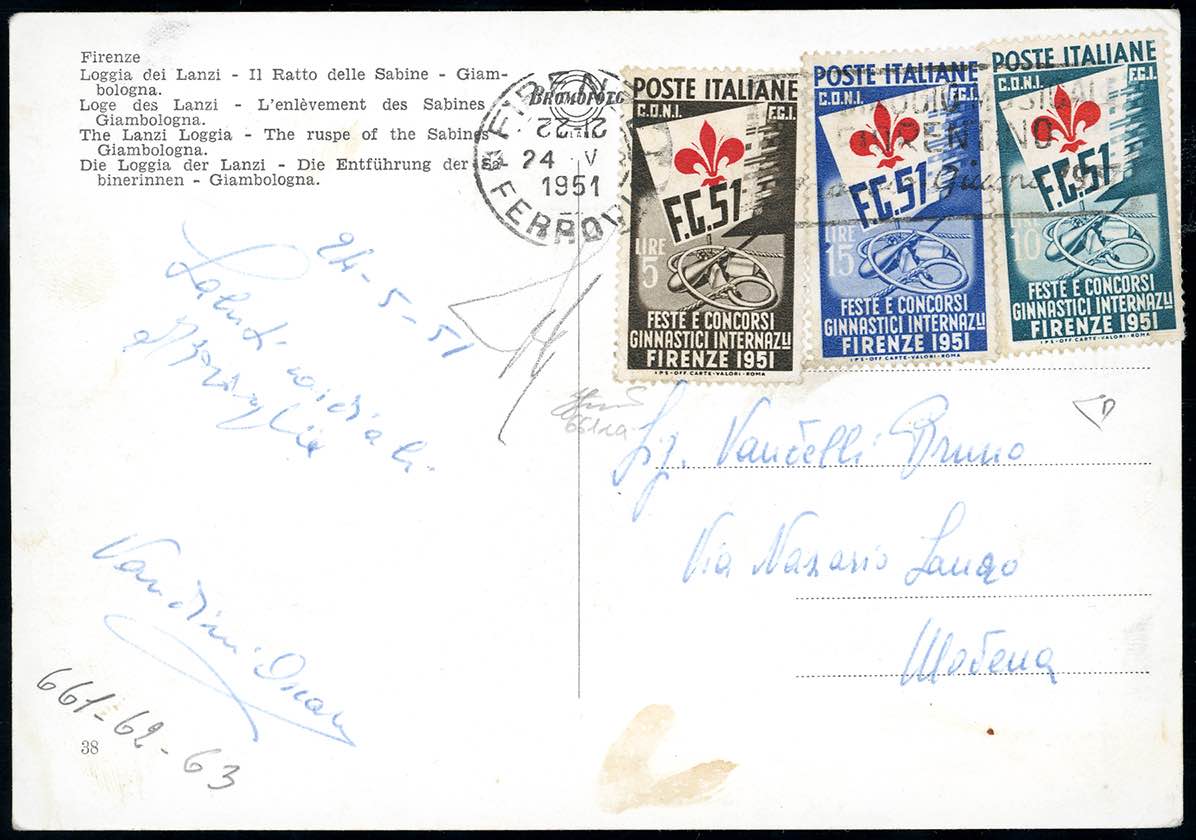 Firenze
Loggia dei Lanzi - Il Ratto delle Sabine - Giam-
bologna.
Loge des Lanzi - L'enlèvement des Sabines
Giambologna.
The Lanzi Loggia - The ruspe of the Sabines
Giambologna.
Die Loggia der Lanzi - Die Entführung der Sa-
binerinnen - Giambologna.
21-22
24 V
1951
FERROVIA
POSTE ITALIANE
C.O.N.I. F.G.I.
F.G.51
LIRE
5
FESTE E CONCORSI
GINNASTICI INTERNAZLI
FIRENZE 1951
IPS-OFF. CARTE-VALORI-ROMA
POSTE ITALIANE
C.O.N.I. F.G.I.
F.G.51
LIRE
15
FESTE E CONCORSI
GINNASTICI INTERNAZLI
FIRENZE 1951
IPS-OFF. CARTE-VALORI-ROMA
POSTE ITALIANE
C.O.N.I. F.G.I.
F.G.51
LIRE
10
FESTE E CONCORSI
GINNASTICI INTERNAZLI
FIRENZE 1951
IPS-OFF. CARTE-VALORI-ROMA
24-5-51
Saluti cordiali
Sig. Vancelli Bruno
Via Nazario Sauro
Modena
661-62-63
38